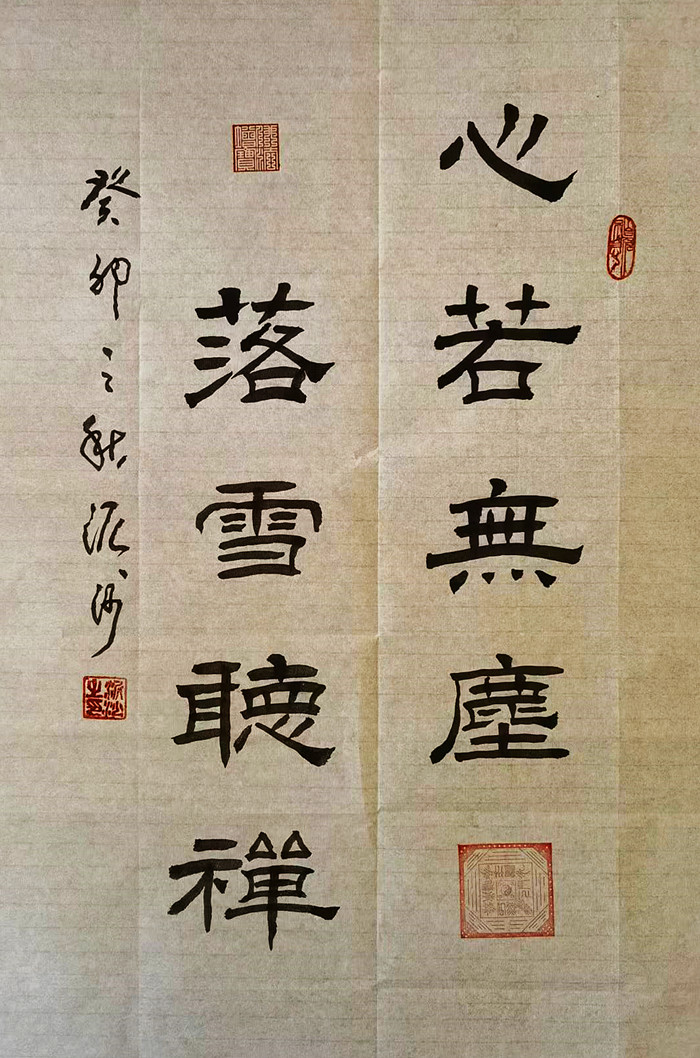 心若無塵
落雪聽禪
癸卯之秋泥沙